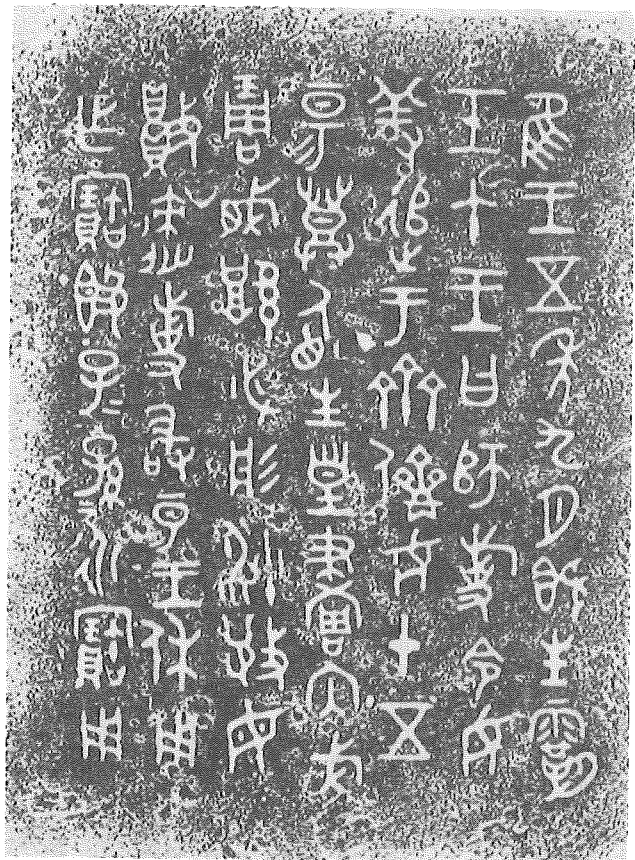 隹王五年九月既生霸
壬午王曰師旋令女
羞追于齊儕女十五
昜登盾生皇畫内戈
琱㦸厚必彤沙敬毋
敗速旋敢昜王休用
乍寶簋子〓孫〓永寶用